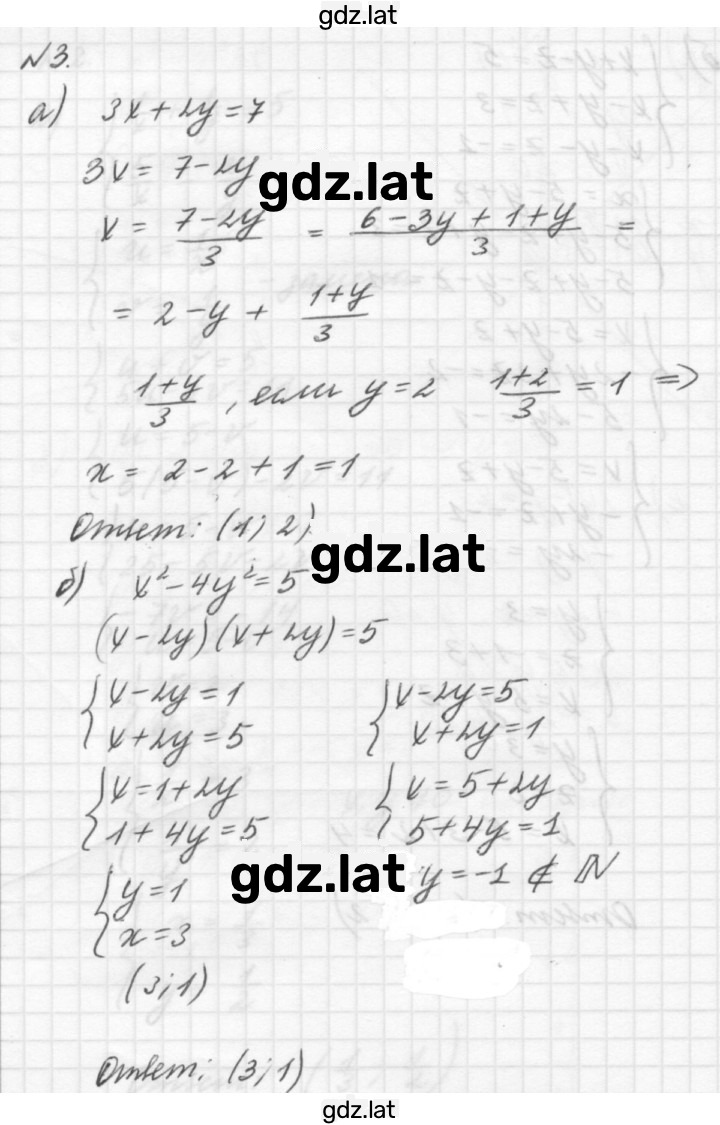 gdz.lat
N3.
а) 3x+2y=7
3x = 7-2y
gdz.lat
x = (7-2y)/3 = (6-3y+1+y)/3 =
= 2-y + (1+y)/3
(1+y)/3 , если y=2 (1+2)/3 = 1 =>
x = 2-2+1=1
Ответ: (1; 2)
gdz.lat
б) x²-4y²=5
(x-2y)(x+2y)=5
{ x-2y=1 { x-2y=5
x+2y=5 x+2y=1
{ x=1+2y { x=5+2y
1+4y=5 5+4y=1
gdz.lat
{ y=1 y=-1 ∉ N
x=3
(3;1)
Ответ: (3;1)
gdz.lat